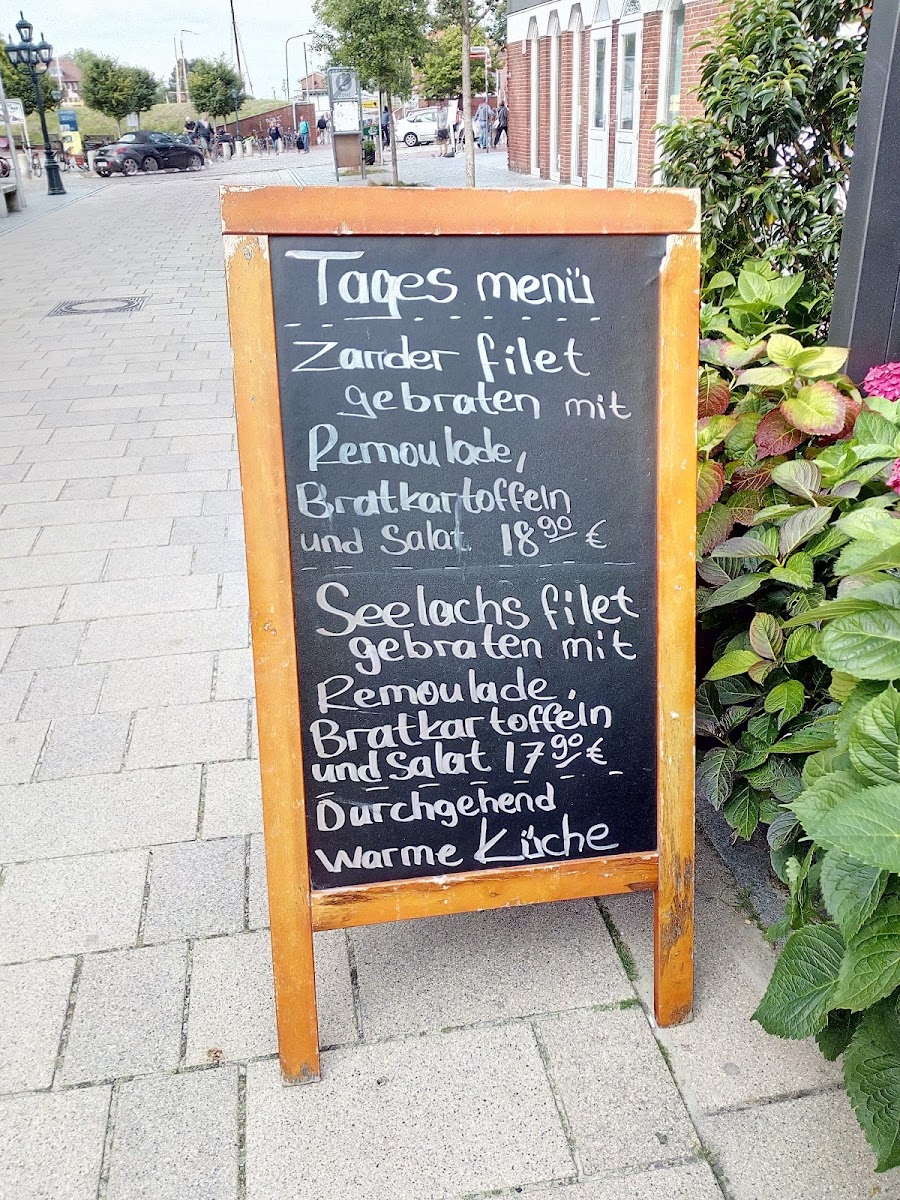 Tages menü
Zander filet
gebraten mit
Remoulade,
Bratkartoffeln
und Salat 18⁹⁰ €
Seelachs filet
gebraten mit
Remoulade.
Bratkartoffeln
und Salat 17⁹⁰ €
Durchgehend
Warme Küche